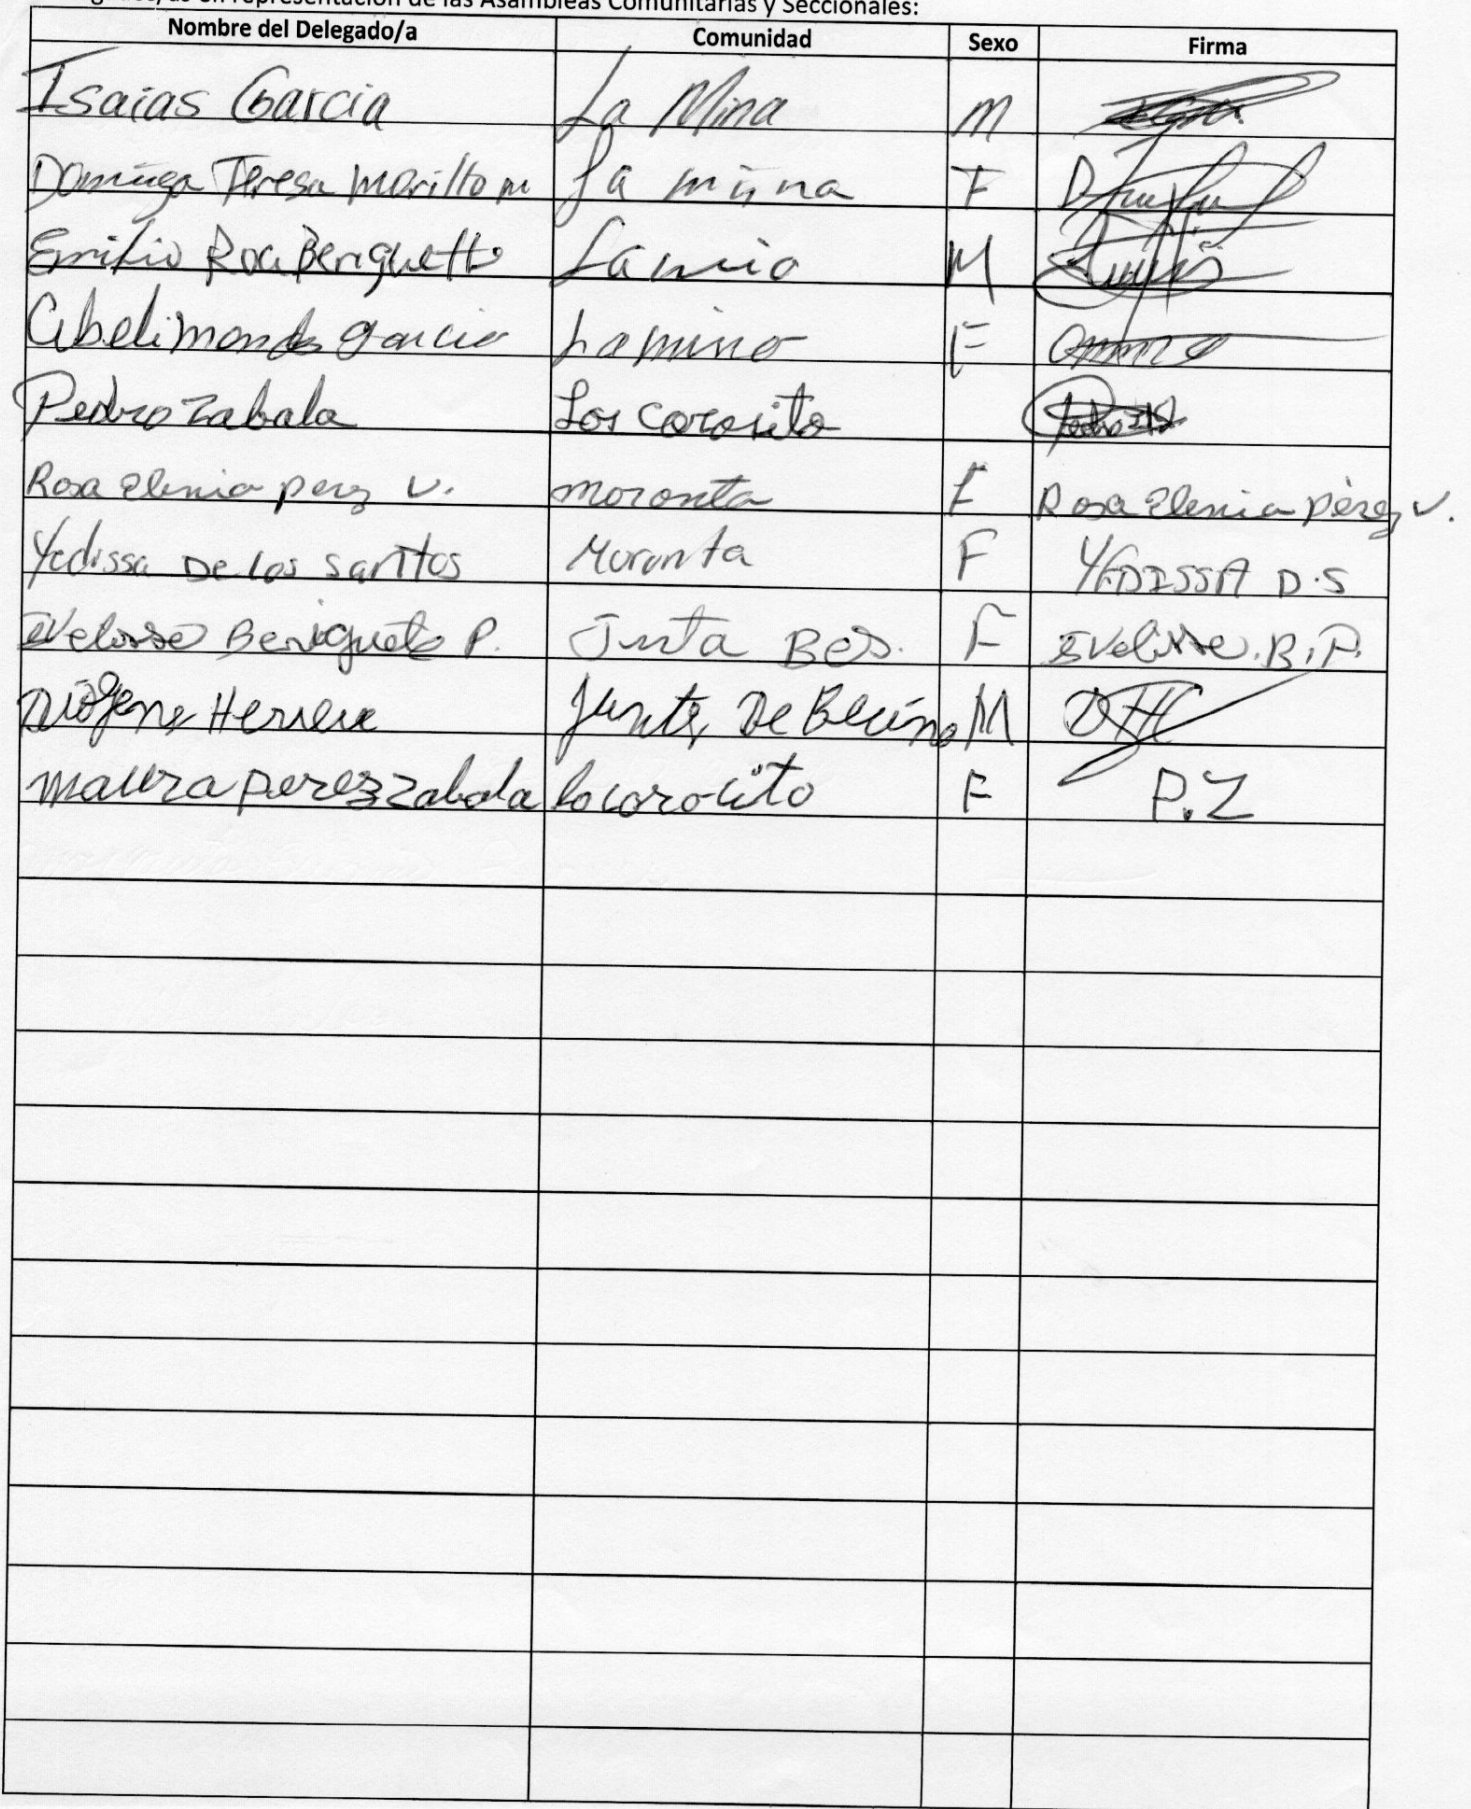 en representación de las Asambleas Comunitarias y Seccionales:
Nombre del Delegado/a Comunidad Sexo Firma
Isaias Garcia La Mina M
Teresa Morillo m La mina F
Emilio Roa Beriguette La M
garcia La mino F
Pedro Zabala Los corosito
Rosa Elenia perez V. moronta F Rosa Elenia Pèrez V.
Yadissa De los santtos Moronta F YADISSA D.S
Beriguete P. Junta F B.P.
Diógene Herrera Junta De M DHC
maura perez zabala locorocito F P.Z